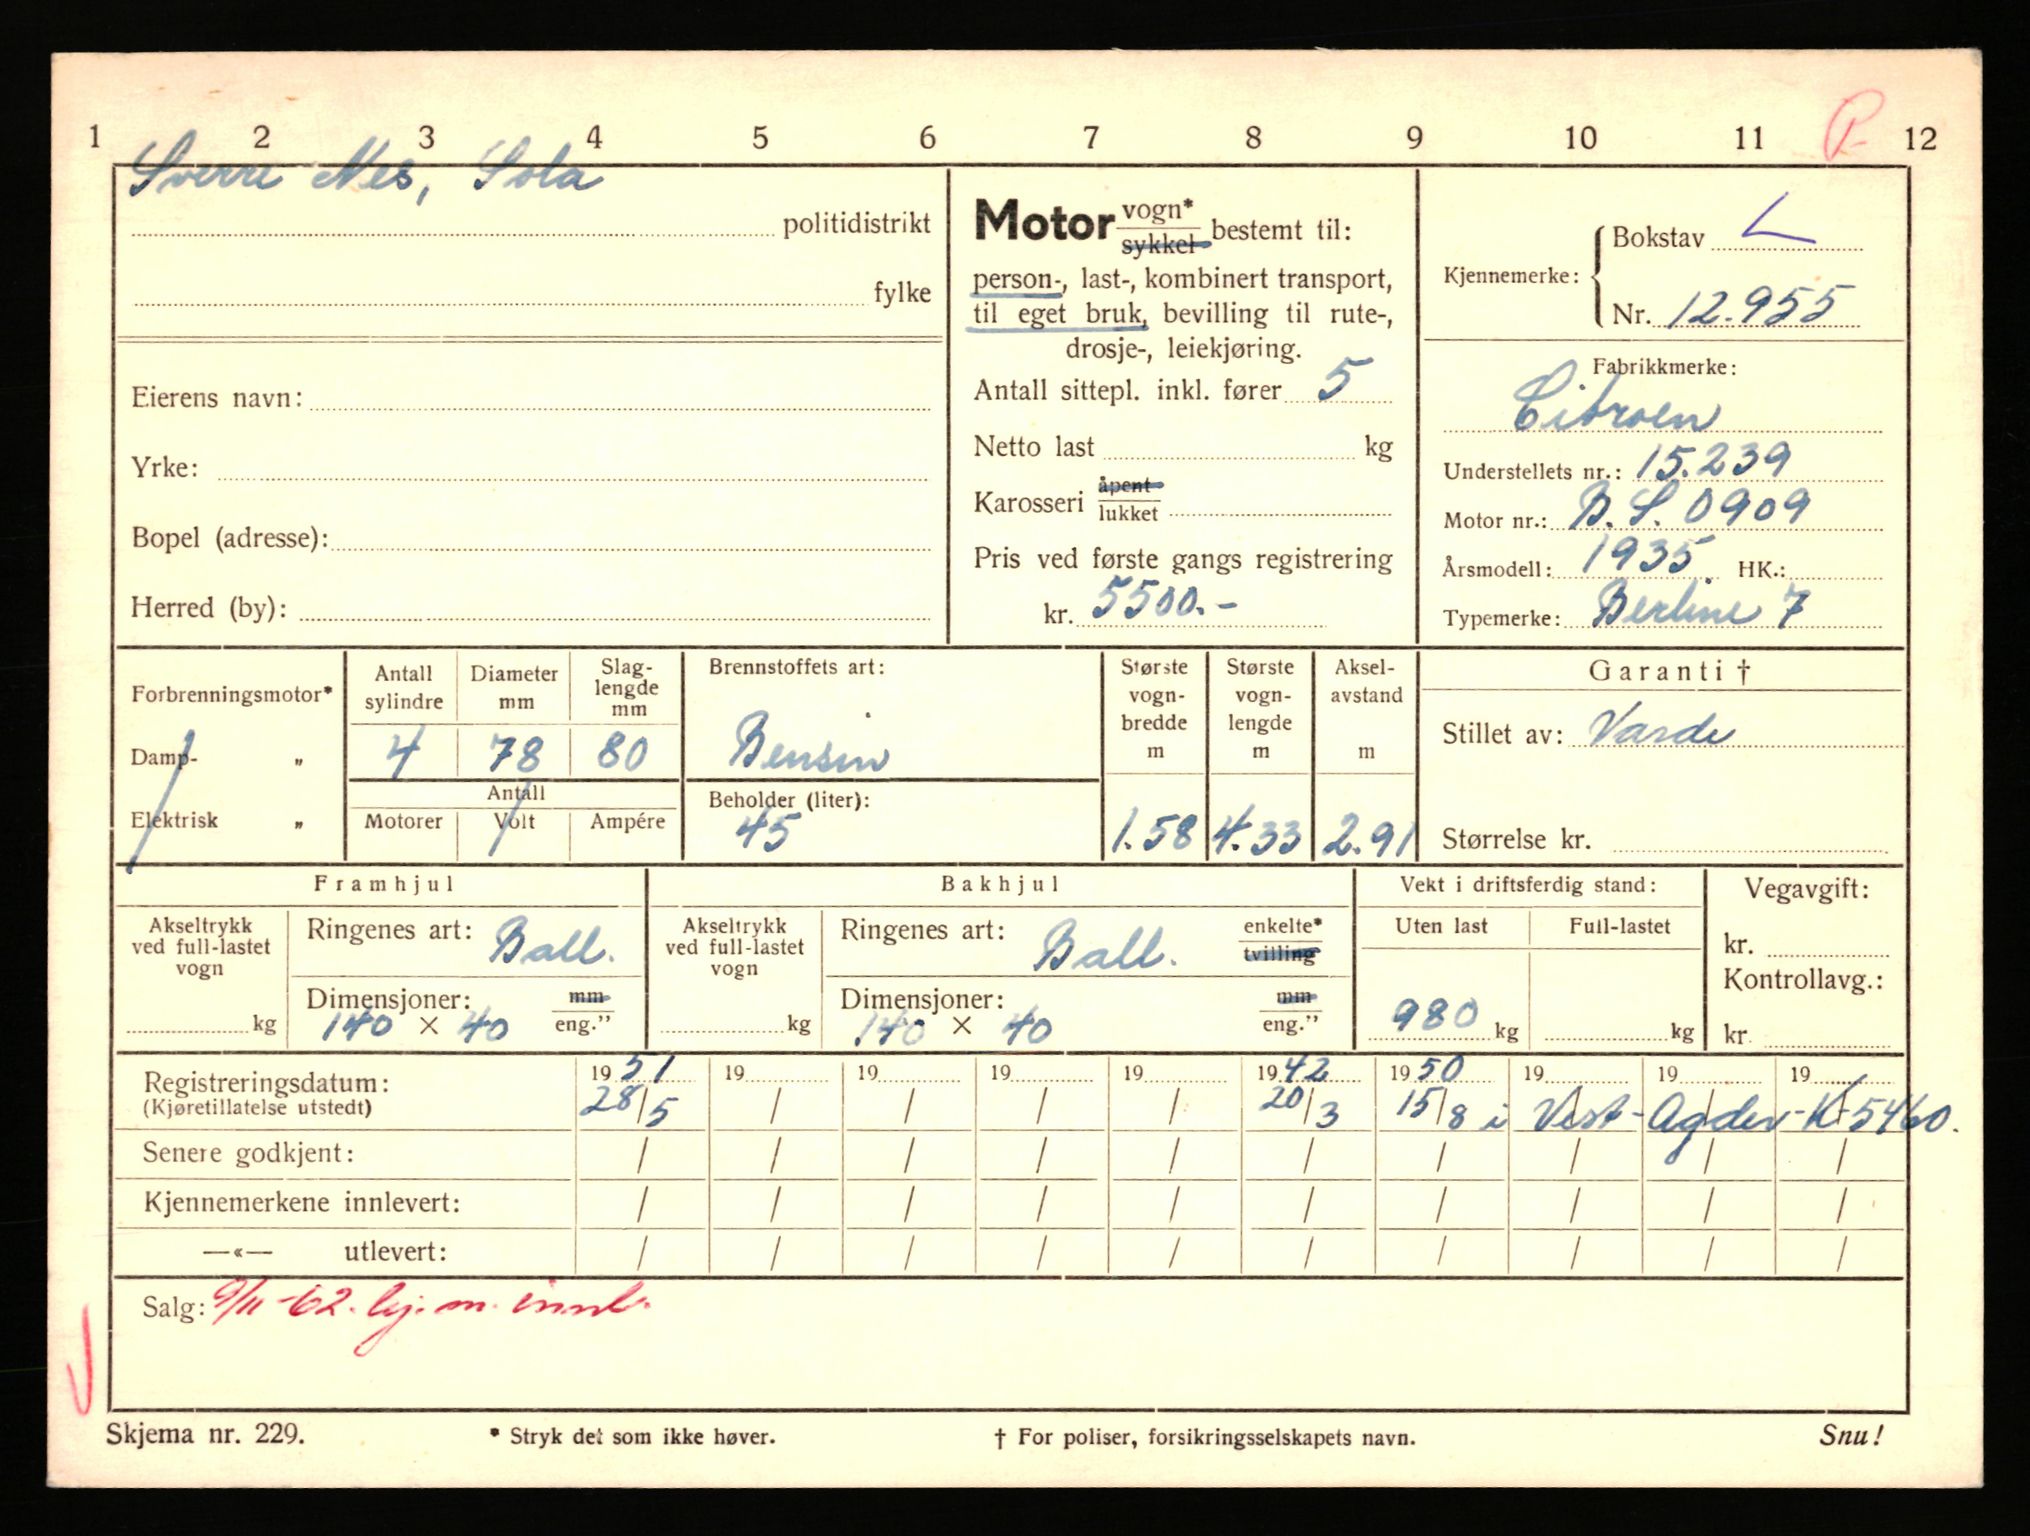 1 2 3 4 5 6 7 8 9 10 11 P- 12
Sverre Nes, Sola
politidistrikt
fylke
Eierens navn:
Yrke:
Bopel (adresse):
Herred (by):
Motor vogn* sykkel bestemt til:
person-, last-, kombinert transport,
til eget bruk, bevilling til rute-,
drosje-, leiekjøring.
Antall sittepl. inkl. fører 5
Netto last kg
Karosseri åpent lukket
Pris ved første gangs registrering
kr. 5500.-
Kjennemerke: Bokstav L
Nr. 12.955
Fabrikkmerke:
Citroen
Understellets nr.: 15.239
Motor nr.: B.S. 0909
Årsmodell: 1935. HK.:
Typemerke: Berline 7
Forbrenningsmotor*
Damp- "
Elektrisk "
Antall sylindre
4
Diameter mm
78
Slag-
lengde
mm
80
Antall
Motorer Volt Ampére
Brennstoffets art:
Bensin
Beholder (liter):
45
Største
vogn-
bredde
m
1.58
Største
vogn-
lengde
m
4.33
Aksel-
avstand
m
2.91
Garanti †
Stillet av: Varde
Størrelse kr.
Framhjul
Akseltrykk
ved full-lastet
vogn
kg
Ringenes art: Ball.
Dimensjoner: mm
140 × 40 eng."
Bakhjul
Akseltrykk
ved full-lastet
vogn
kg
Ringenes art: Ball. enkelte* tvilling
Dimensjoner: mm
140 × 40 eng."
Vekt i driftsferdig stand:
Uten last Full-lastet
980 kg kg
Vegavgift:
kr.
Kontrollavg.:
kr.
Registreringsdatum: 1951 19 19 19 19 1942 1950 19 19 19
(Kjøretillatelse utstedt) 28/5 / / / / 20/3 15/8 i Vest-Agder-K-5460.
Senere godkjent: / / / / / / / / / /
Kjennemerkene innlevert: / / / / / / / / / /
—«— utlevert: / / / / / / / / / /
Salg: 9/11-62. kj. m. innl.
Skjema nr. 229. * Stryk det som ikke høver. † For poliser, forsikringsselskapets navn. Snu!